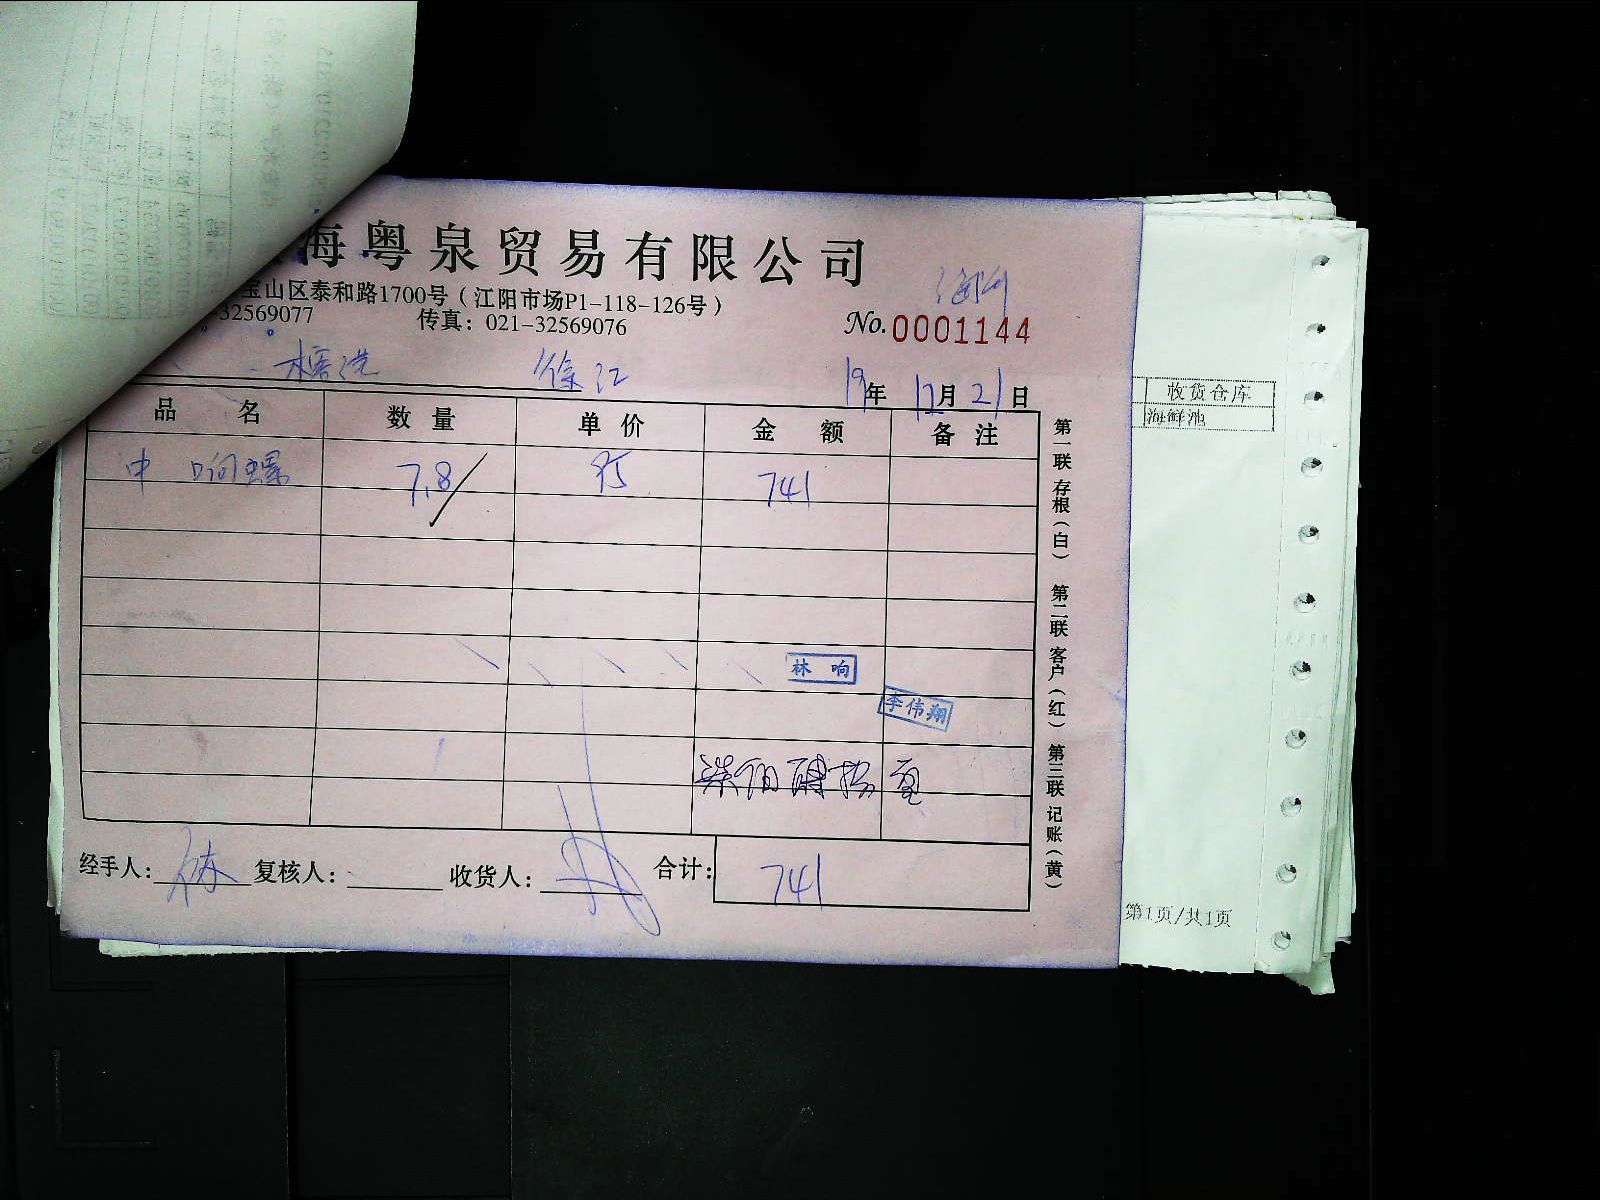 海粤泉贸易有限公司
宝山区泰和路1700号（江阳市场P1-118-126号）
-32569077 传真：021-32569076
No.0001144
徐汇
19年12月21日
品 名 数 量 单 价 金 额 备 注
中 响螺 7.8 95 741
林 响
李伟翔
经手人： 复核人： 收货人： 合计： 741
第一联 存根（白） 第二联 客户（红） 第三联 记账（黄）
收货仓库
海鲜池
第1页/共1页